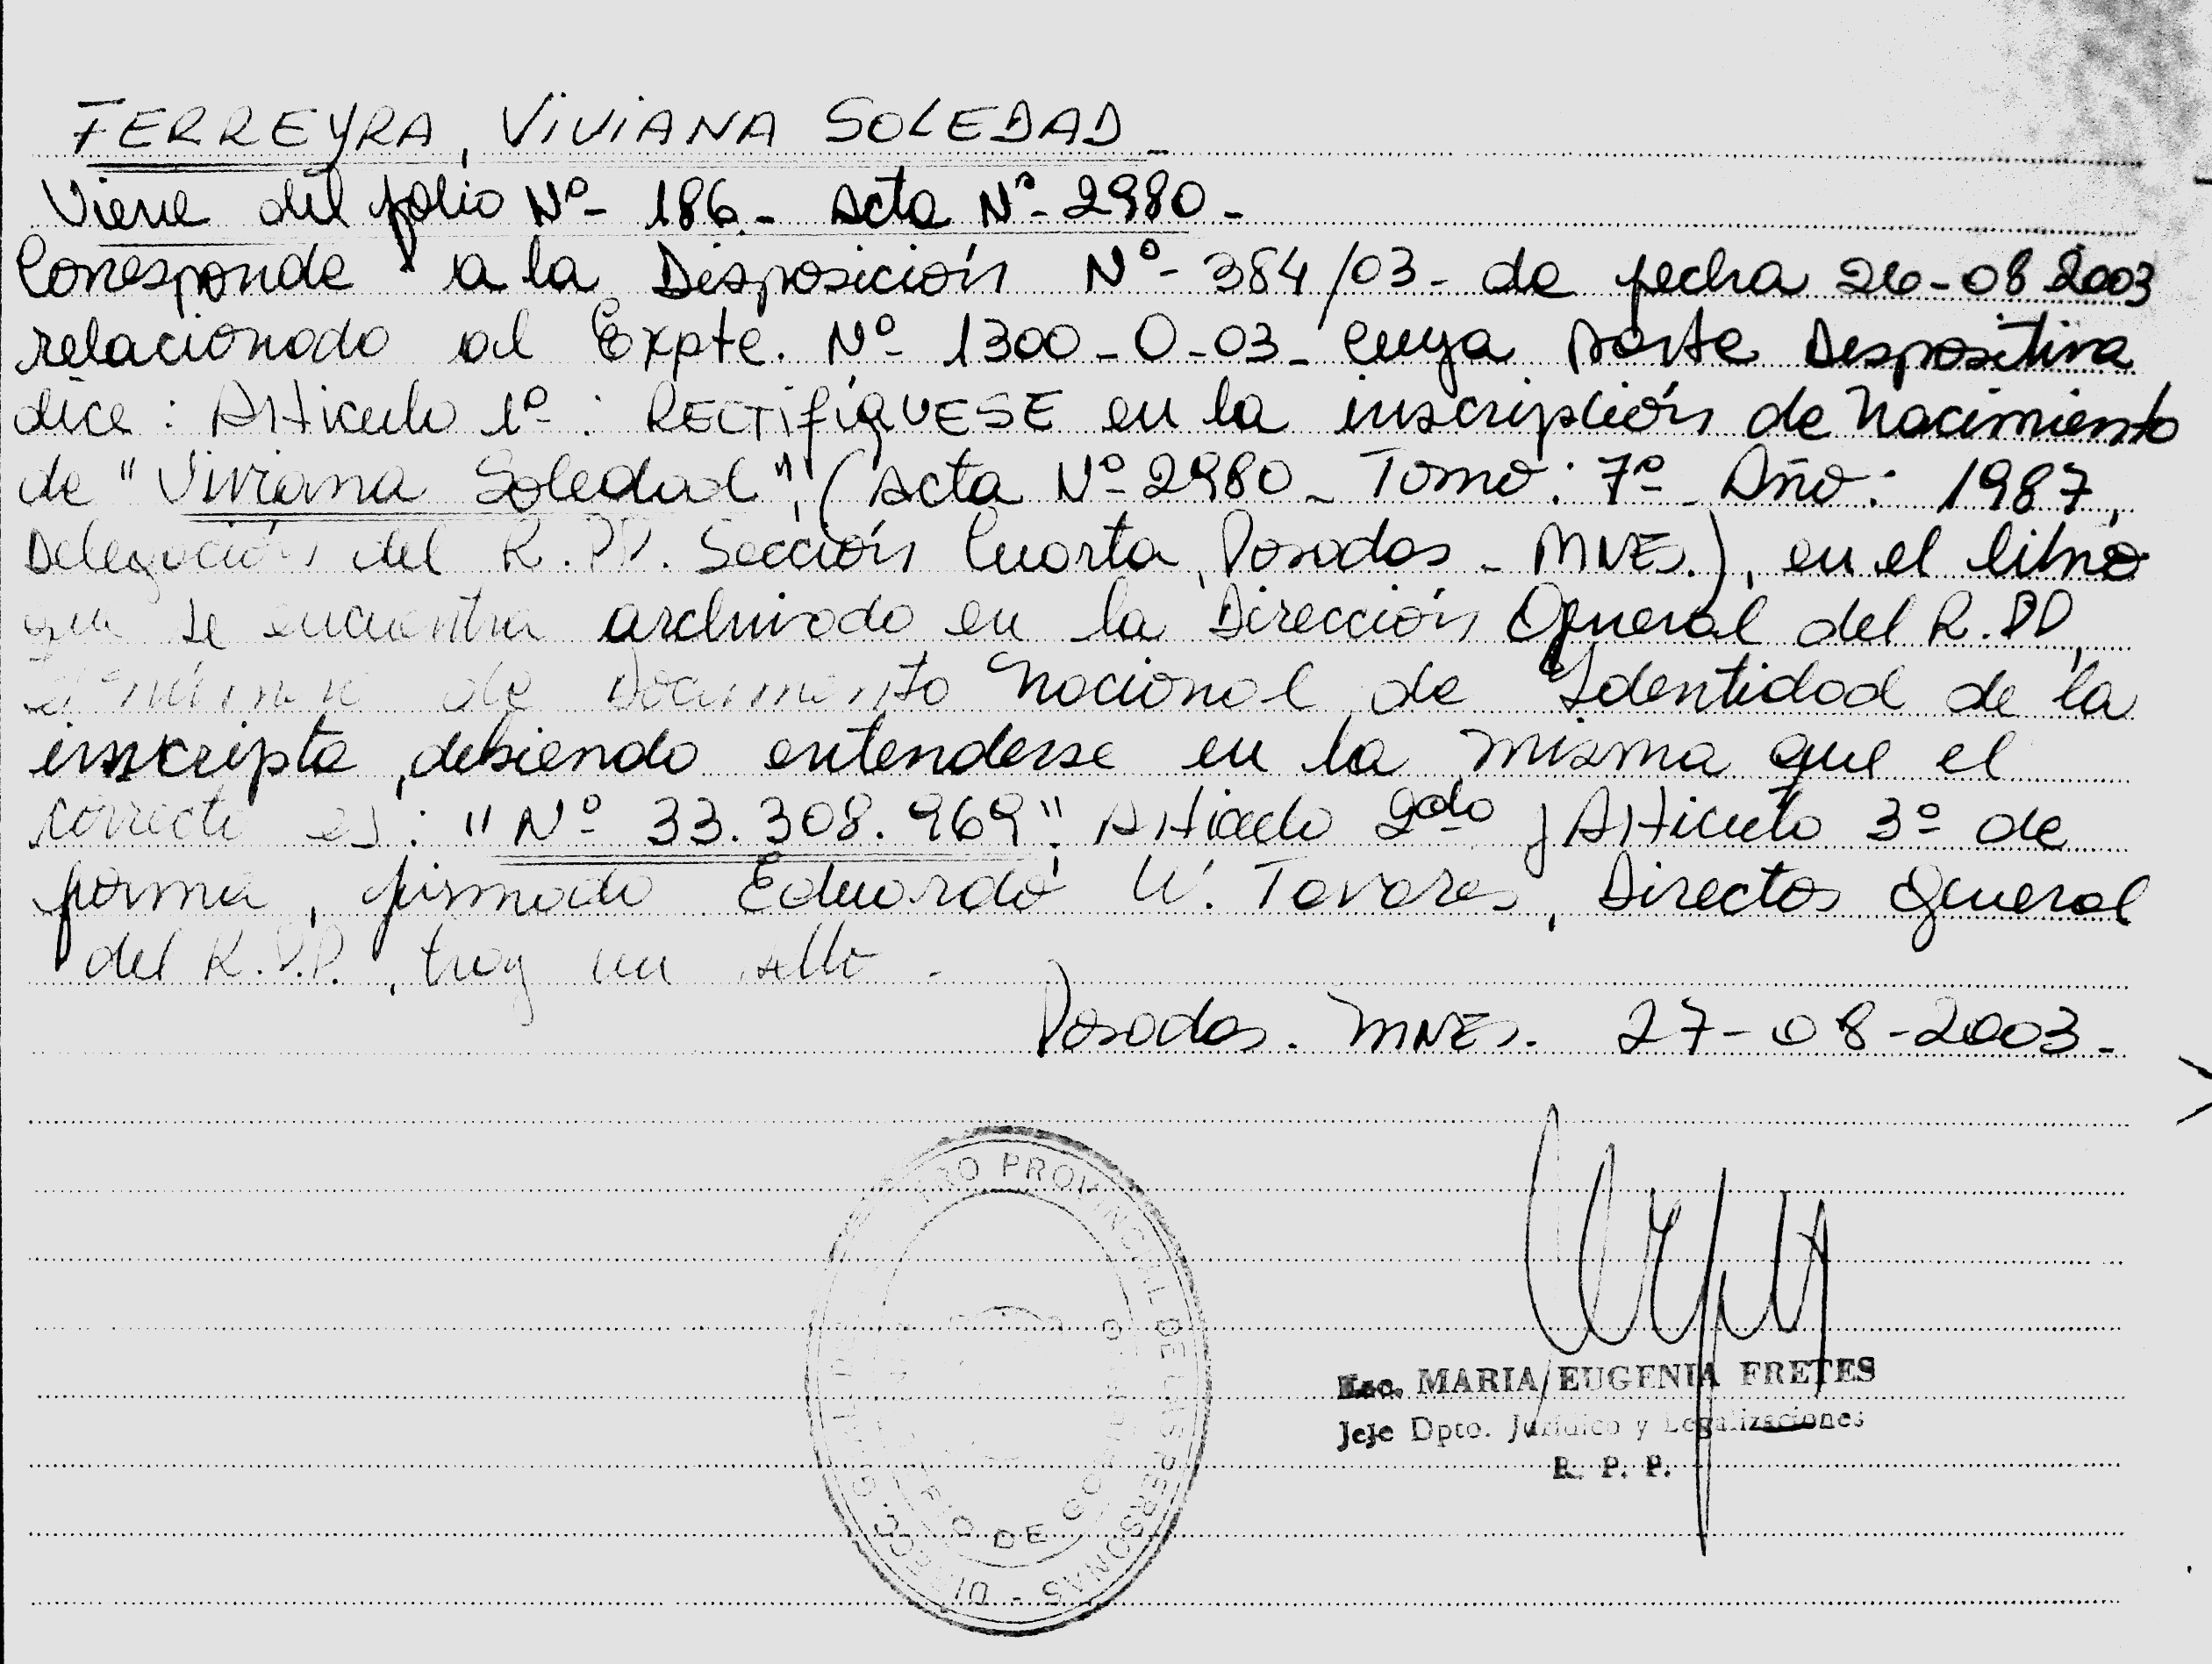 FERREYRA, VIVIANA SOLEDAD_
Viene del folio Nº- 186_ Acta Nº- 2980_
Corresponde a la Disposición Nº- 384/03_ de fecha 26-08 2003
relacionado al Expte. Nº 1300_O_03_ cuya parte Dispositiva
dice: Artículo 1º: RECTIFÍQUESE en la inscripción de Nacimiento
de "Viviana Soledad", (Acta Nº 2980_ Tomo: 7º_ Año: 1987,
Delegación del R.PP. Sección Cuarta, Posadas_ MNES.), en el libro
que se encuentra archivado en la Dirección General del R.PP,
el número de Documento Nacional de Identidad de la
inscripta, debiendo entenderse en la misma que el
correcto es: "Nº 33.308.969". Artículo 2do y Artículo 3º de
forma, firmado Eduardo W. Tavares, Director General
del R.P.P., hay un sello_
Posadas. MNES. 27-08-2003_
REGISTRO PROVINCIAL DE LAS PERSONAS - DIRECC.
MINISTERIO DE GOBIERNO
Esc. MARIA EUGENIA FRETES
Jefe Dpto. Jurídico y Legalizaciones
R. P. P.